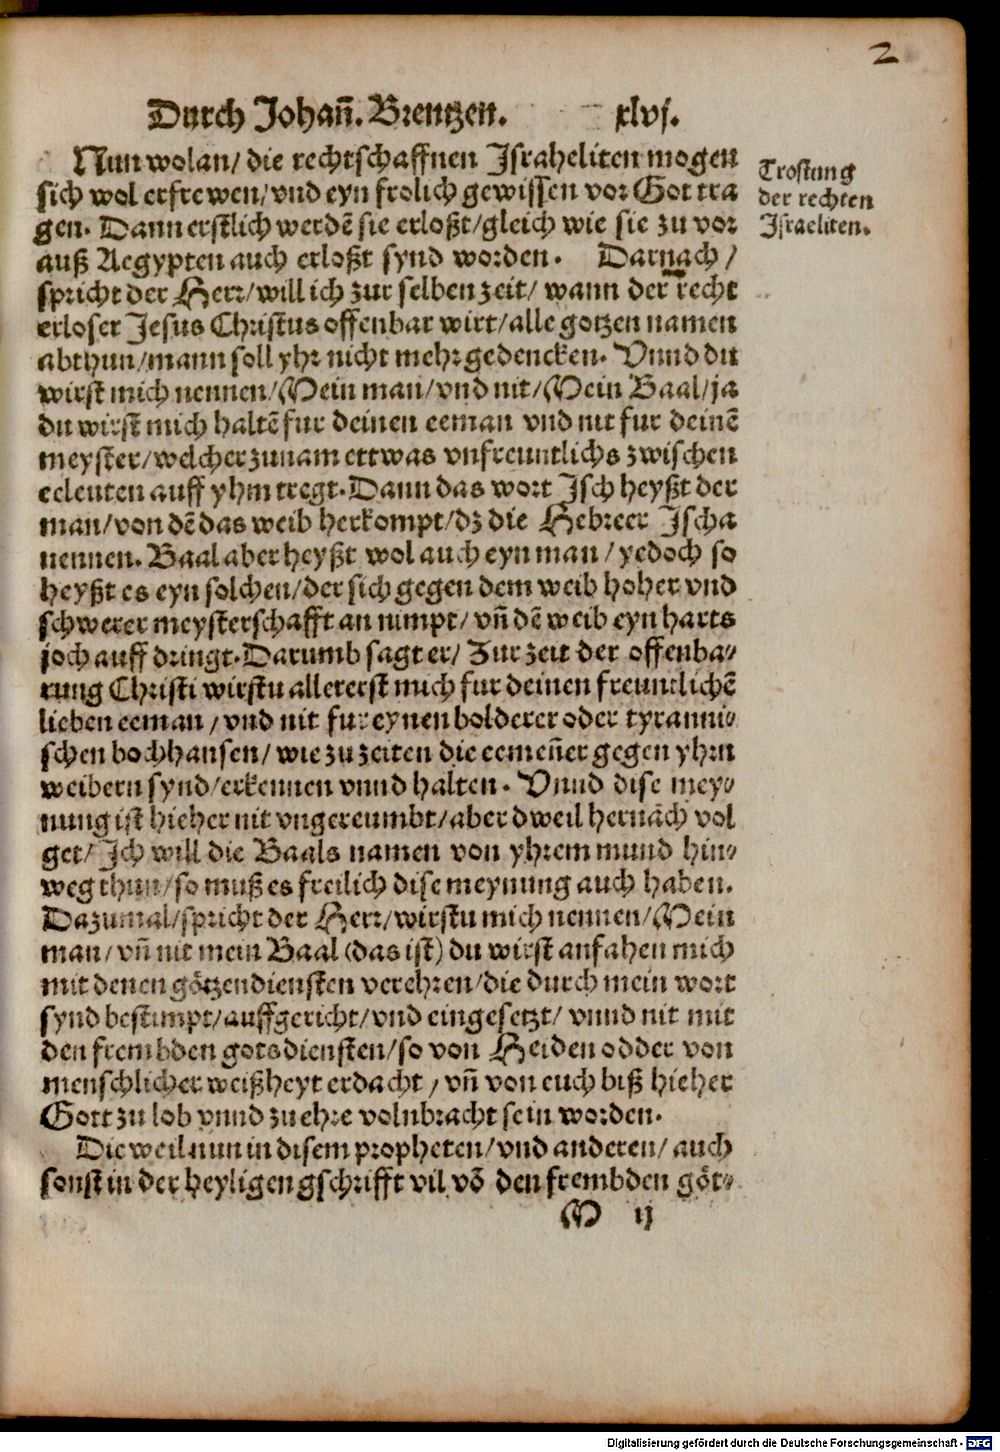 2
Durch Johañ. Brentzen. xlvj.
Nun wolan/ die rechtschaffnen Jsraheliten mogen
sich wol erfrewen/vnd eyn frolich gewissen vor Got tra
gen. Dann erstlich werdē sie erloßt/gleich wie sie zu vor
auß Aegypten auch erloßt synd worden. Darnach/
spricht der Herr/will ich zur selben zeit/ wann der recht
erloser Jesus Christus offenbar wirt/alle gotzen namen
abthun/mann soll yhr nicht mehr gedencken. Vnnd du
wirst mich nennen/Mein man/vnd nit/Mein Baal/ja
du wirst mich haltē fur deinen eeman vnd nit fur deinē
meyster/welcher zunam ettwas vnfreuntlichs zwischen
eeleuten auff yhm tregt. Dann das wort Jsch heyßt der
man/von dē das weib herkompt/dz die Hebreer Jscha
nennen. Baal aber heyßt wol auch eyn man/yedoch so
heyßt es eyn solchen/der sich gegen dem weib hoher vnd
schwerer meysterschafft an nimpt/ vñ dē weib eyn harts
joch auff dringt. Darumb sagt er/ Zur zeit der offenba⸗
rung Christi wirstu allererst mich fur deinen freuntlichē
lieben eeman/vnd nit fur eynen bolderer oder tyranni⸗
schen bochhansen/wie zu zeiten die eemeñer gegen yhrn
weibern synd/erkennen vnnd halten. Vnnd dise mey⸗
nung ist hieher nit vngereumbt/aber dweil hernach vol
get/Jch will die Baals namen von yhrem mund hin⸗
weg thun/so muß es freilich dise meynung auch haben.
Dazumal/spricht der Herr/wirstu mich nennen/Mein
man/vñ nit mein Baal (das ist) du wirst anfahen mich
mit denen götzendiensten verehren/die durch mein wort
synd bestimpt/auffgericht/vnd eingesetzt/ vnnd nit mit
den frembden gotsdiensten/so von Heiden odder von
menschlicher weißheyt erdacht/vñ von euch biß hieher
Gott zu lob vnnd zu ehre volnbracht sein worden.
Die weil nun in disem propheten/vnd anderen/auch
sonst in der heyligen gschrifft vil vō den frembden göt⸗
M ij
Trostung
der rechten
Jsraeliten.
Digitalisierung gefördert durch die Deutsche Forschungsgemeinschaft - DFG